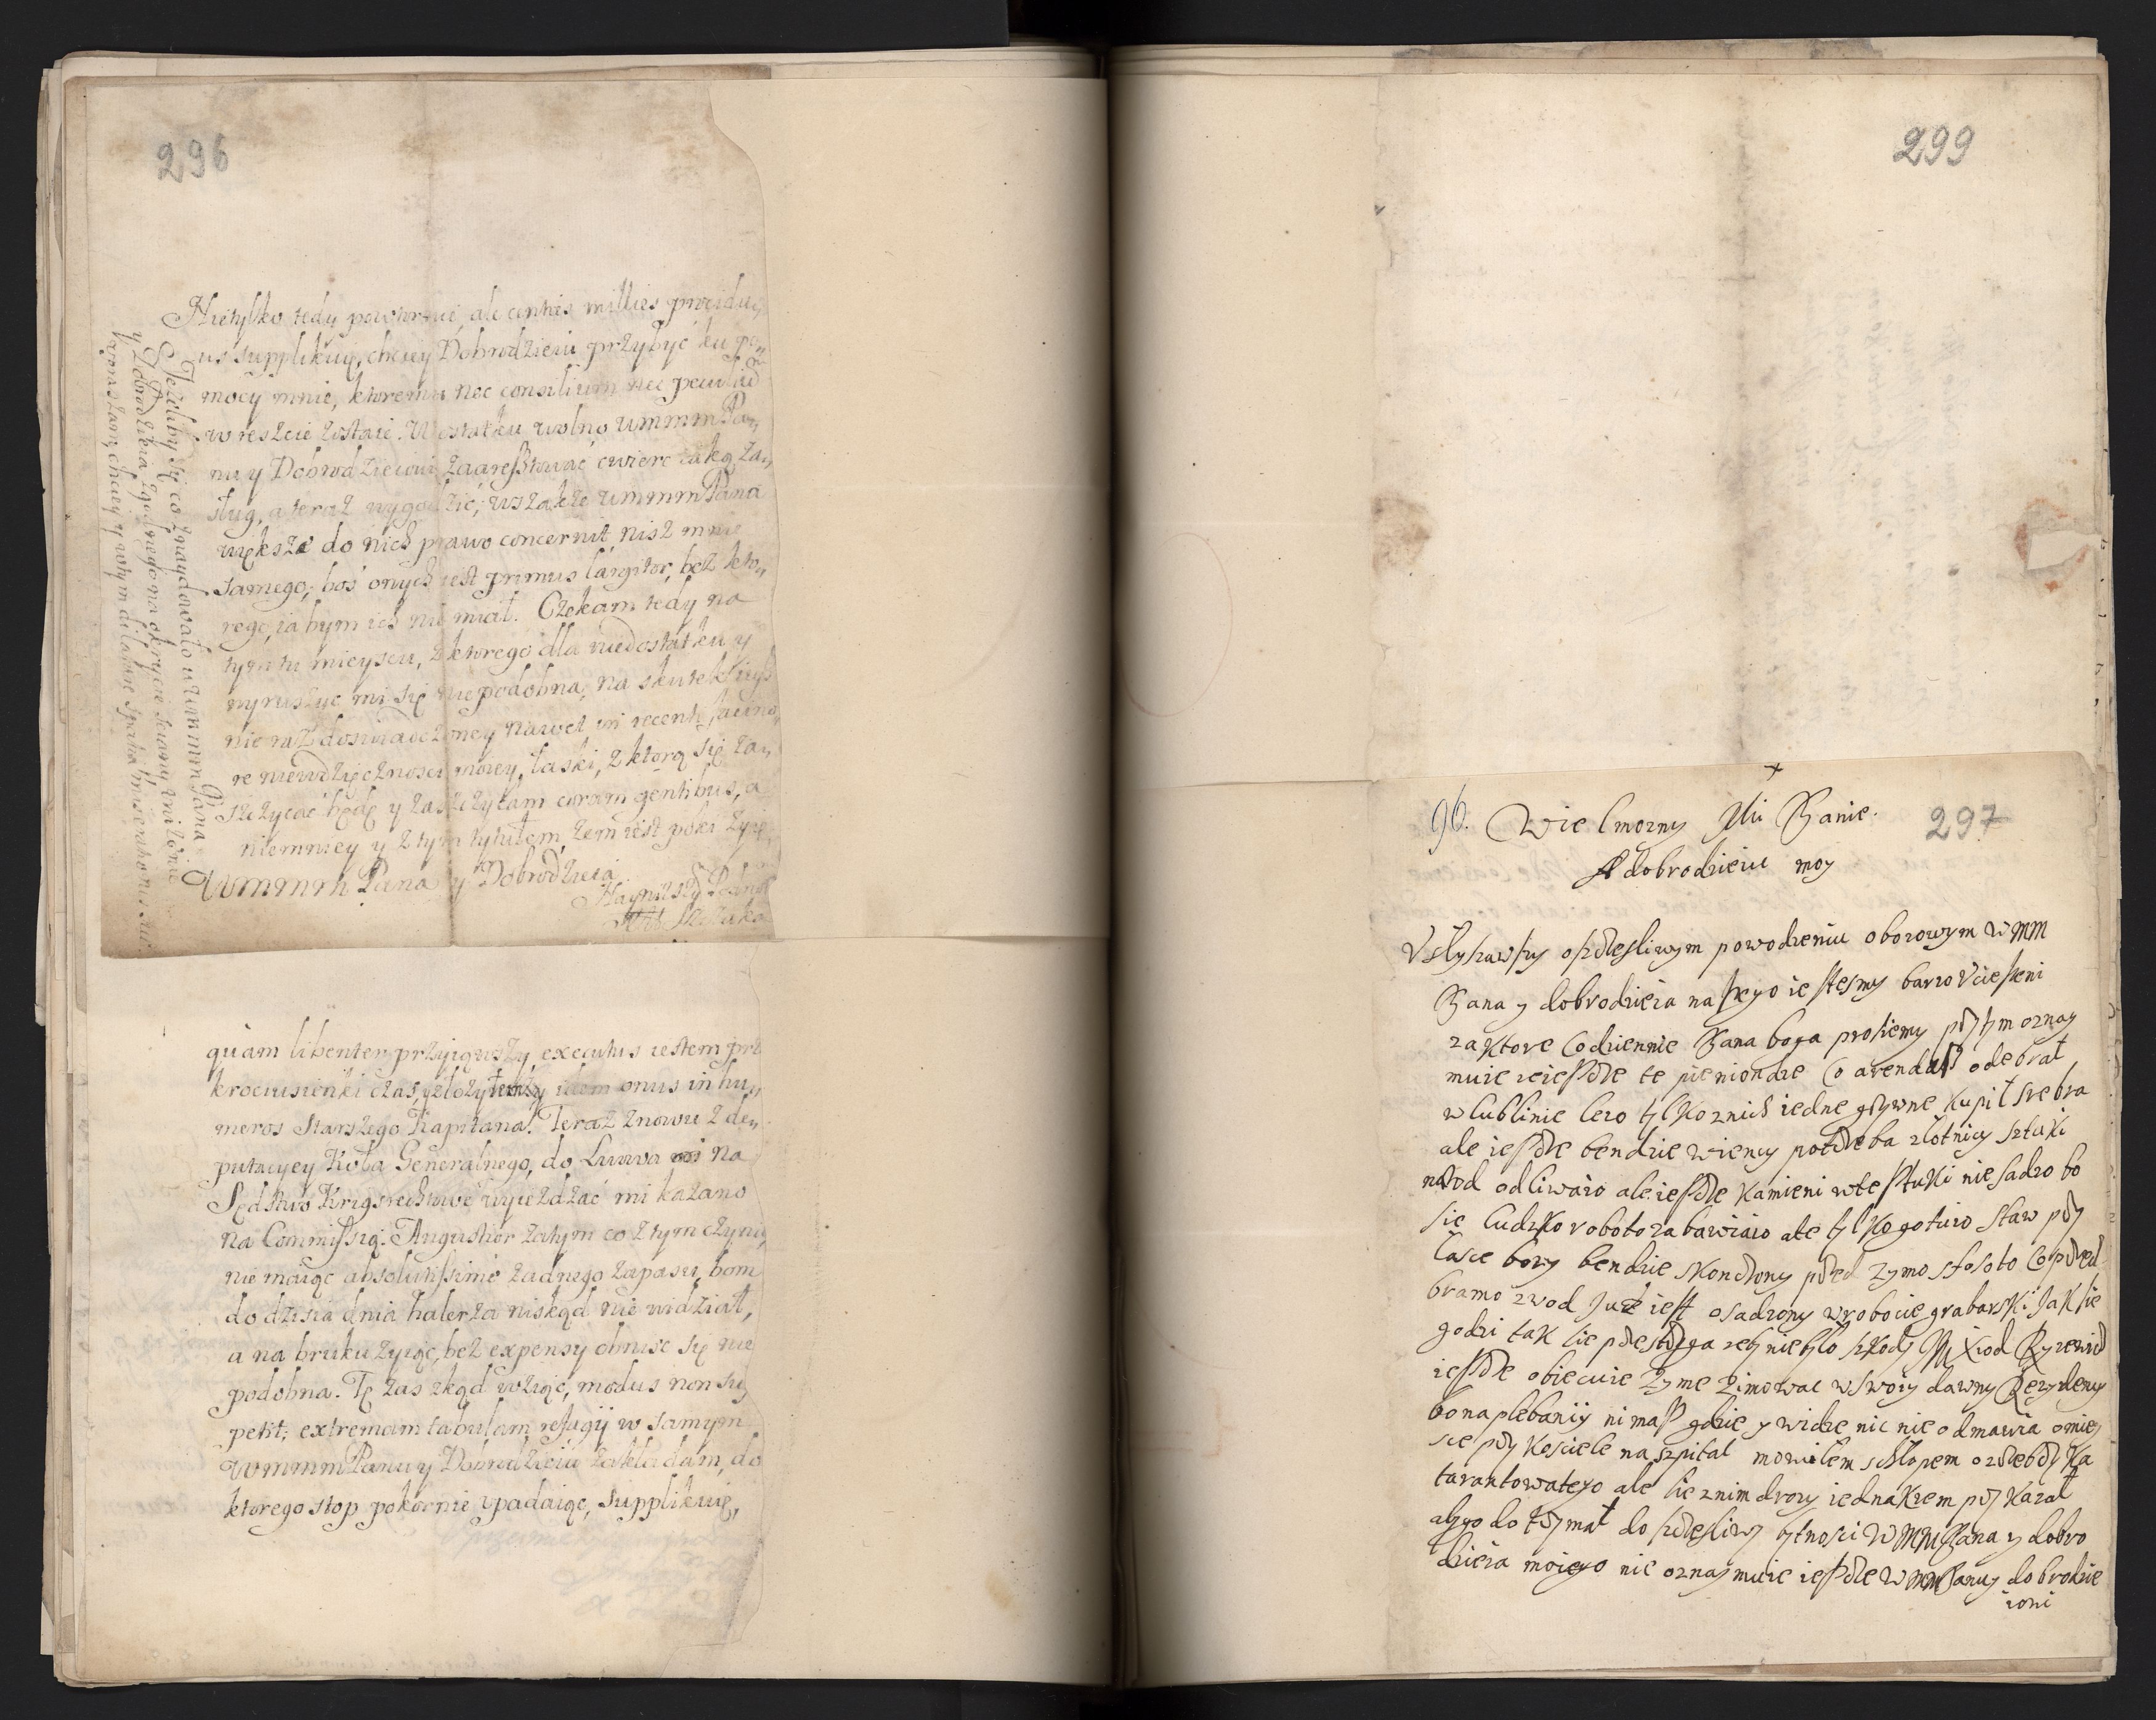 296
Nietylko tedy powtornié, ale centies millies prociduus
us supplikuię, chciey Dobrodzieiu przybyć ku po
mocy mnie, ktoremu nec consilium nec
w reszcie zostaie. W ostatku wolno WMMM Pa
nu y Dobrodzieiowi zaaresztować cwierc za
sług, a teraz wygodzić; wszakże WMMM Pana
większe do nich prawo concernit nisz mnie
samego; boś onych iest primus largitor, bez kto
rego, ia bym ich nie miał. Czekam tedy na
tym tu mieyscu, z ktorego dla niedostatku y
wyruszyc mi się niepodobna, na skutek
nie raz doswiadczoney nawet in recenti
re niewdzięcznosci moiey, łaski, z ktorą się za
szczycać będę y zaszczycam coram gentibus, a
niemniey y z tym tytułem, żem iest poki żyię
WMMM Pana y Dobrodzieia
Nayniszszy
Jeżeliby się co znaydowało u WMMM Pana
y Dobrodzieia zgodnego na okrycie
chciey y w tym
quam libenter przyiąwszy, executus iestem
krociusienki czas, y złożyłem idem onus in hu
meros Starszego Kapitana. Teraz znowu z de
putacyey Koła Generalnego, do Lwowa na
Sędztwo Krigsrechtowe wyieżdżać mi kazano
na Commissią. Angustior zatym co z tym czynić,
nie maiąc absolutissime żadnego zapasu, bom
do dzisia dnia halerza niskąd nie widział,
a na bruku żyiąc, bez expensy obniść się nie
podobna. Tę zas zkąd wziąć, modus non sup
petit; extremam tabulam refugij w samym
WMMM Panu y Dobrodzieiu zakładam, do
ktorego stop pokornie upadaiąc, supplikuię,
299
96. Wielmozny Mci Panie. 297
A dobrodzieiu moy
Vslyszawszy oszczesliwym powodzeniu obozowym WMM
Pana y dobrodzieia naszego iestesmy barzo Vcieszeni
za ktore codziennie Pana boga prosiemy przytym oznay
muie ze ieszcze te pieniondze co arendasz odebrał
w lublinie lezo tylko znich iedne grzywne kupił srebra
ale ieszcze bendzie wiency potrzeba złotnicy sztuki
nawod odliwaio ale ieszcze kamieni wte sztuki nie sadzo bo
sie ludzko roboto zabawiaio ale tylko gotuio staw przy
łasce bozy bendzie skonczony przed zymo szoso to co przed
bramo zwod Juz iest osadzony w robocie grabarski Jak sie
godzi tak sie przestrzega zeby nie bylo szkody JM Xiod
ieszcze obiecuie zyme zimowac wswoiy dawny Rezydency
bo na plebanij ni masz gdzie y widze nic nie odmawia omiey
sce przy kosciele na szpital mowilem schłopem ozrzebczyka
tarantowatego ale sie znim drozy iednakzem przykazał
abygo dotrzymał do szczesliwy bytnosci WMM Pana y dobro
dzieia moiego nic oznaymuie ieszcze WMM Panuy dobrodzie
iowi